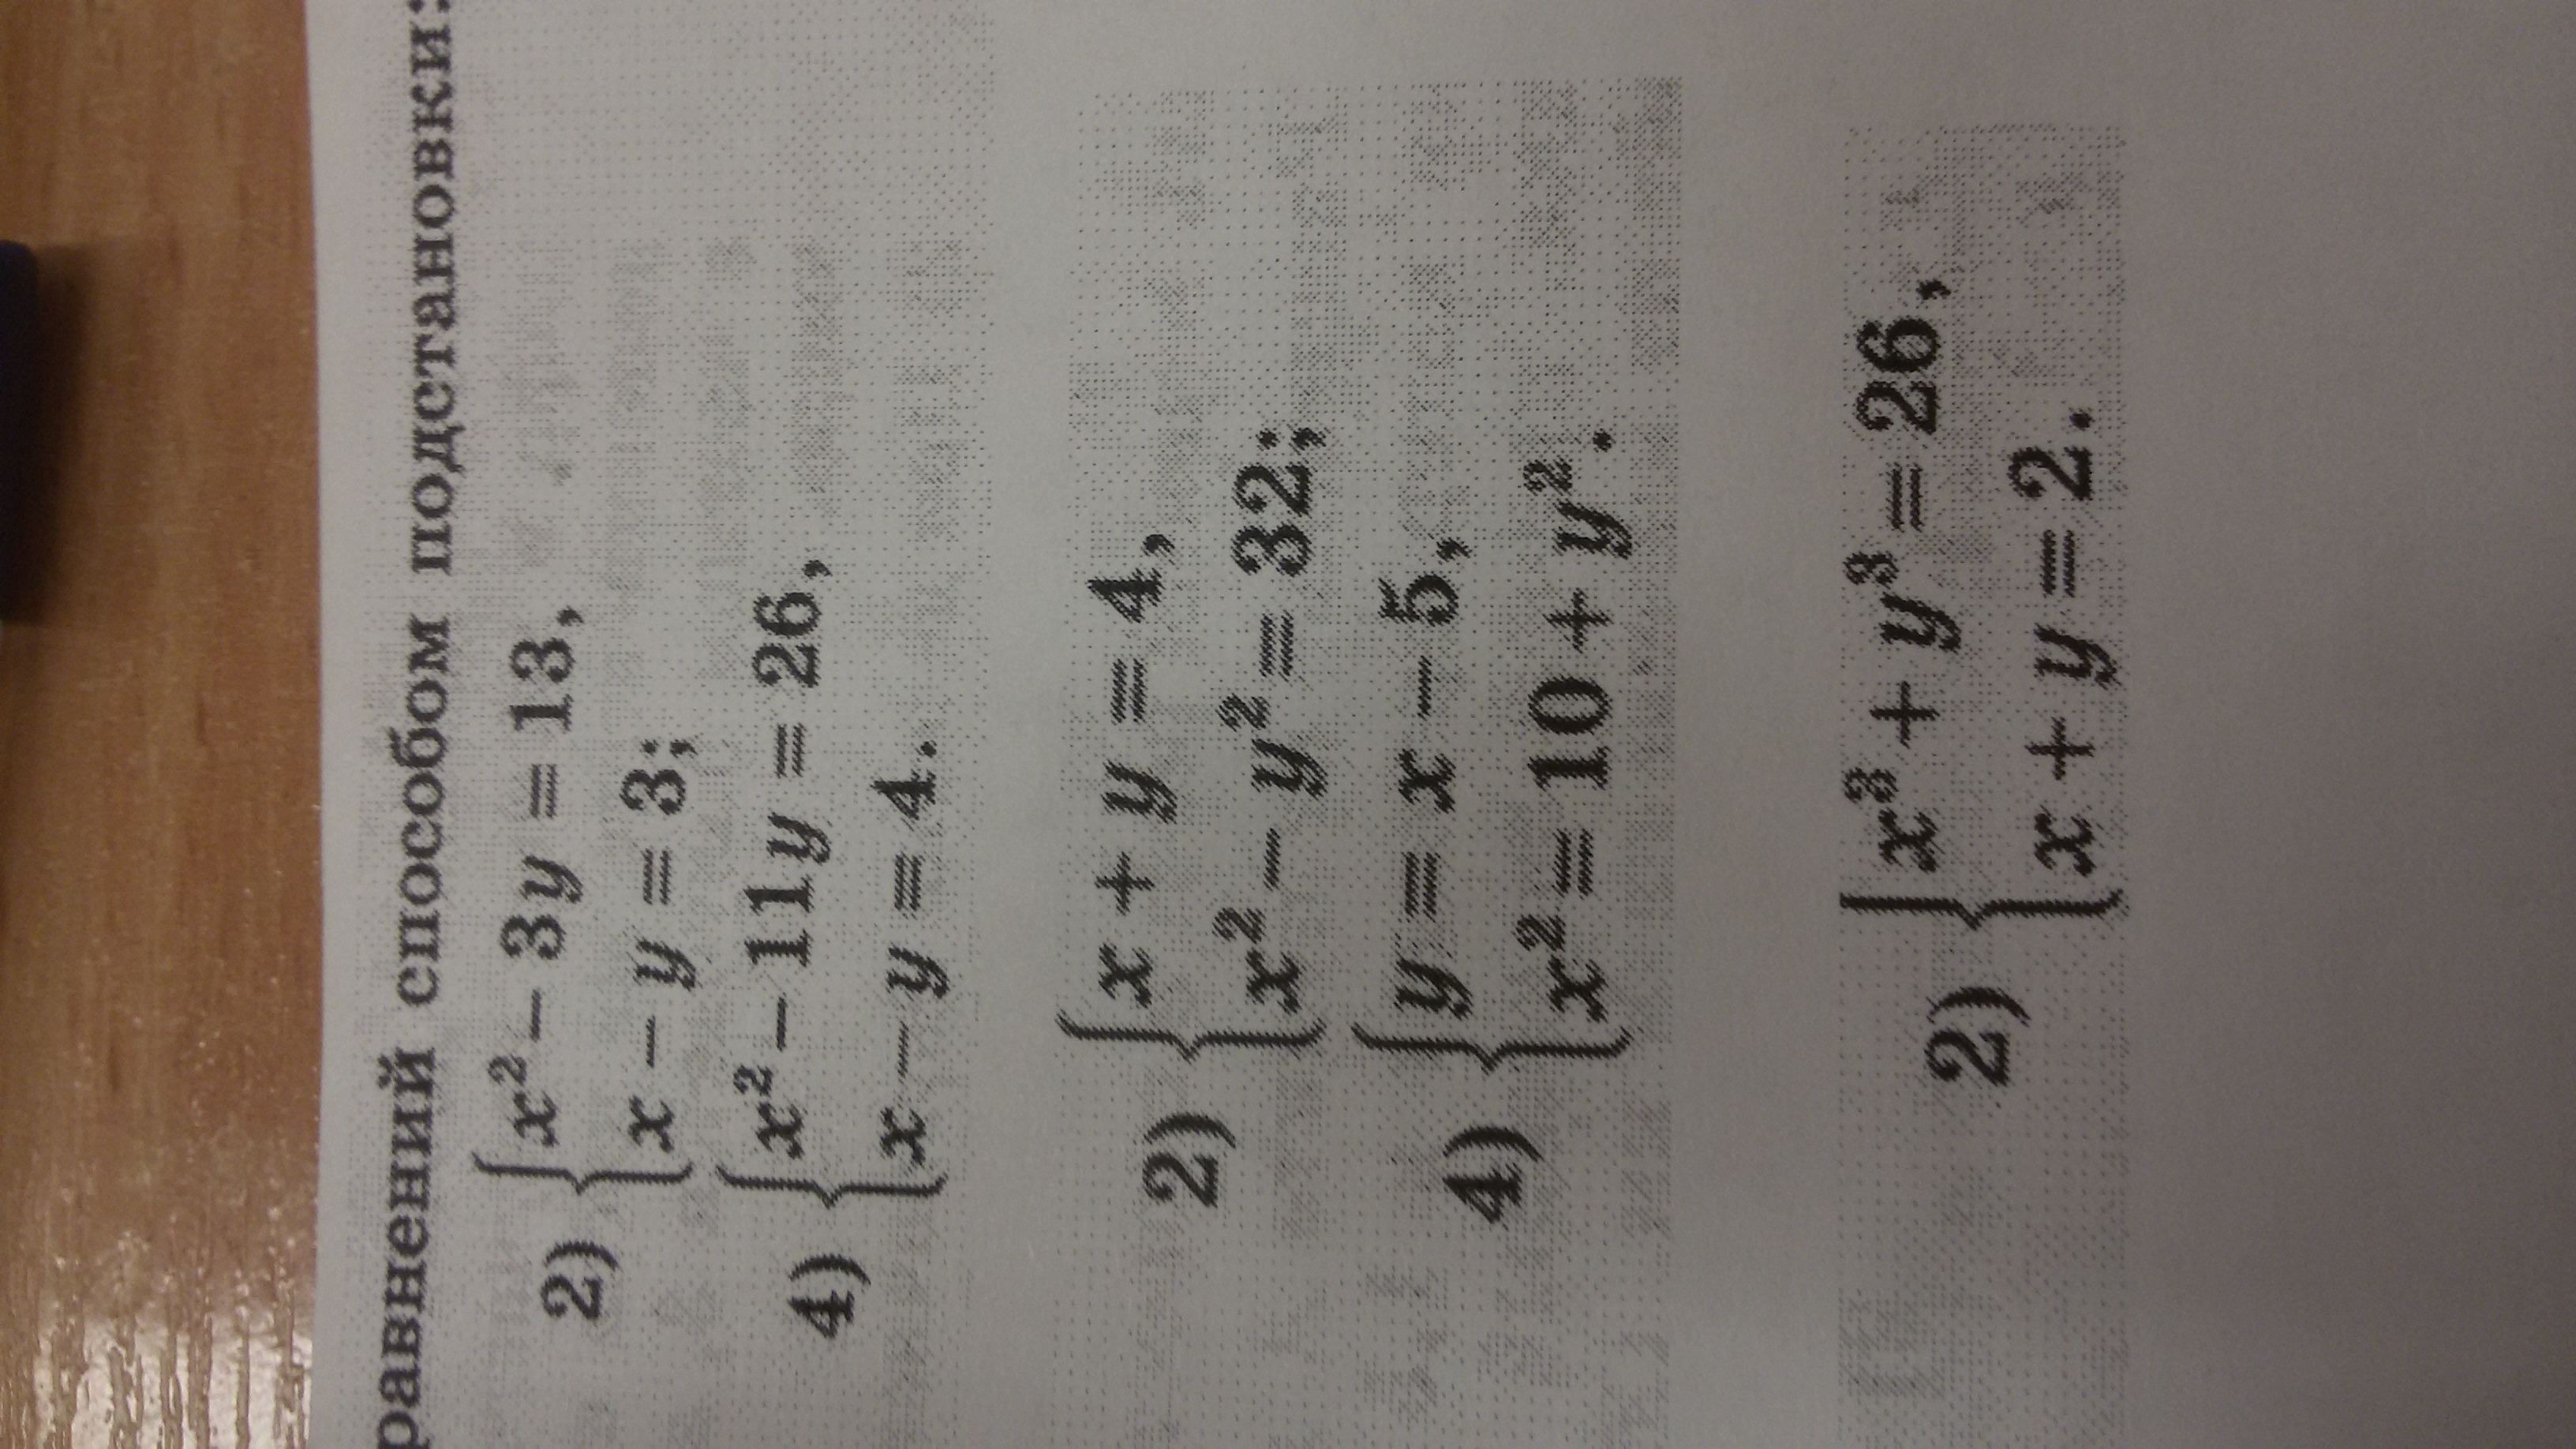 равнений способом подстановки:
2) { x² − 3y = 13,
x − y = 3;
4) { x² − 11y = 26,
x − y = 4.
2) { x + y = 4,
x² − y² = 32;
4) { y = x − 5,
x² = 10 + y².
2) { x³ + y³ = 26,
x + y = 2.